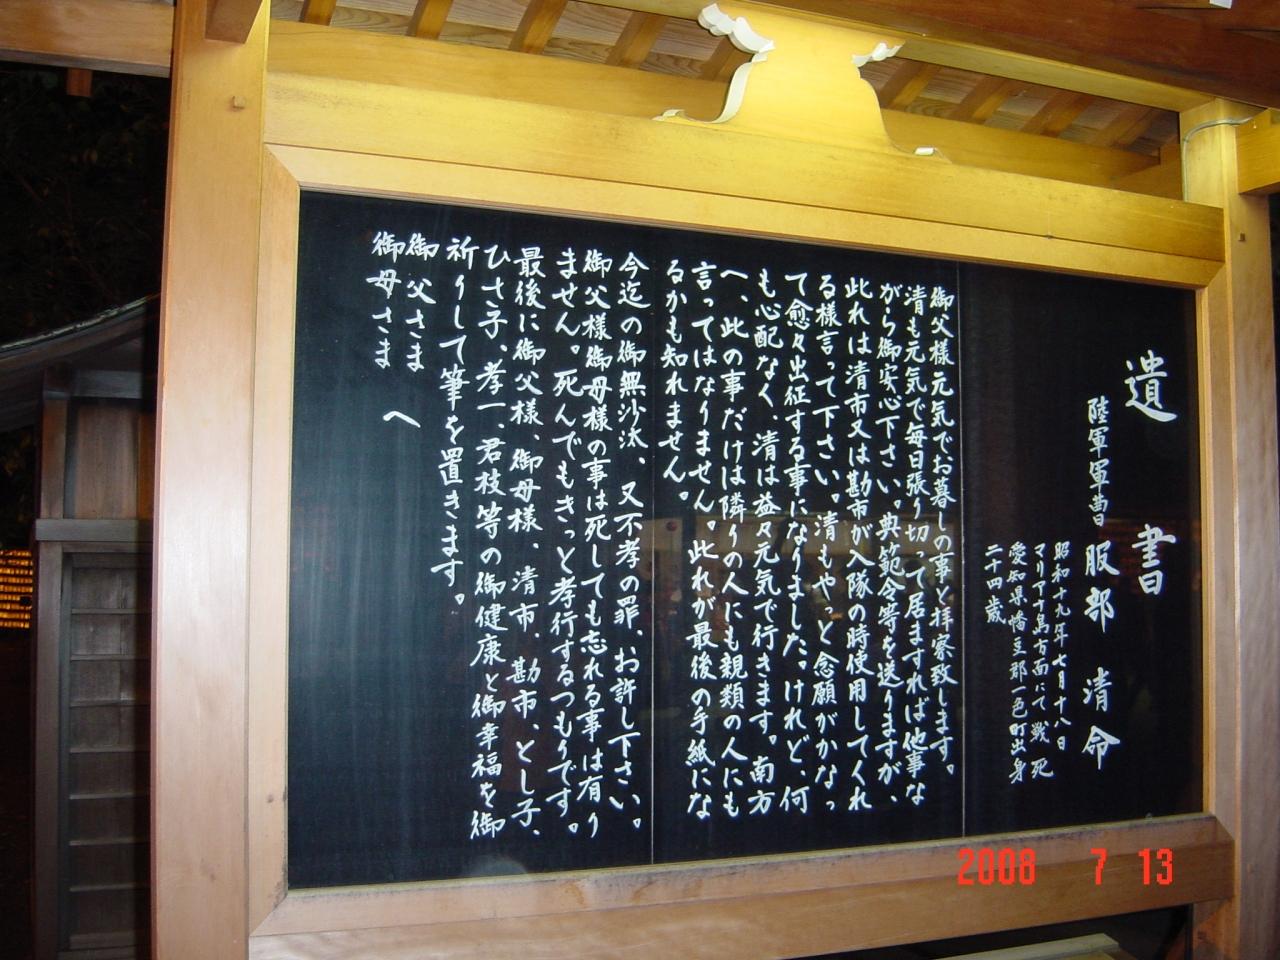 遺書
陸軍軍曹 服部 清命
昭和十九年七月十八日
マリアナ島方面にて戦死
愛知県幡豆郡一色町出身
二十四歳
御父様元気でお暮しの事と拝察致します。
清も元気で毎日張り切って居ますれば他事な
がら御安心下さい。典範令等を送りますが、
此れは清市又は勘市が入隊の時使用してくれ
る様言って下さい。清もやっと念願がかなっ
て愈々出征する事になりました。けれど、何
も心配なく、清は益々元気で行きます。南方
へ、此の事だけは隣りの人にも親類の人にも
言ってはなりません。此れが最後の手紙にな
るかも知れません。
今迄の御無沙汰、又不孝の罪、お許し下さい。
御父様御母様の事は死しても忘れる事は有り
ません。死んでもきっと孝行するつもりです。
最後に御父様、御母様、清市、勘市、とし子、
ひさ子、孝一、君枝等の御健康と御幸福を御
祈りして筆を置きます。
御父さま
御母さま へ
2008 7 13